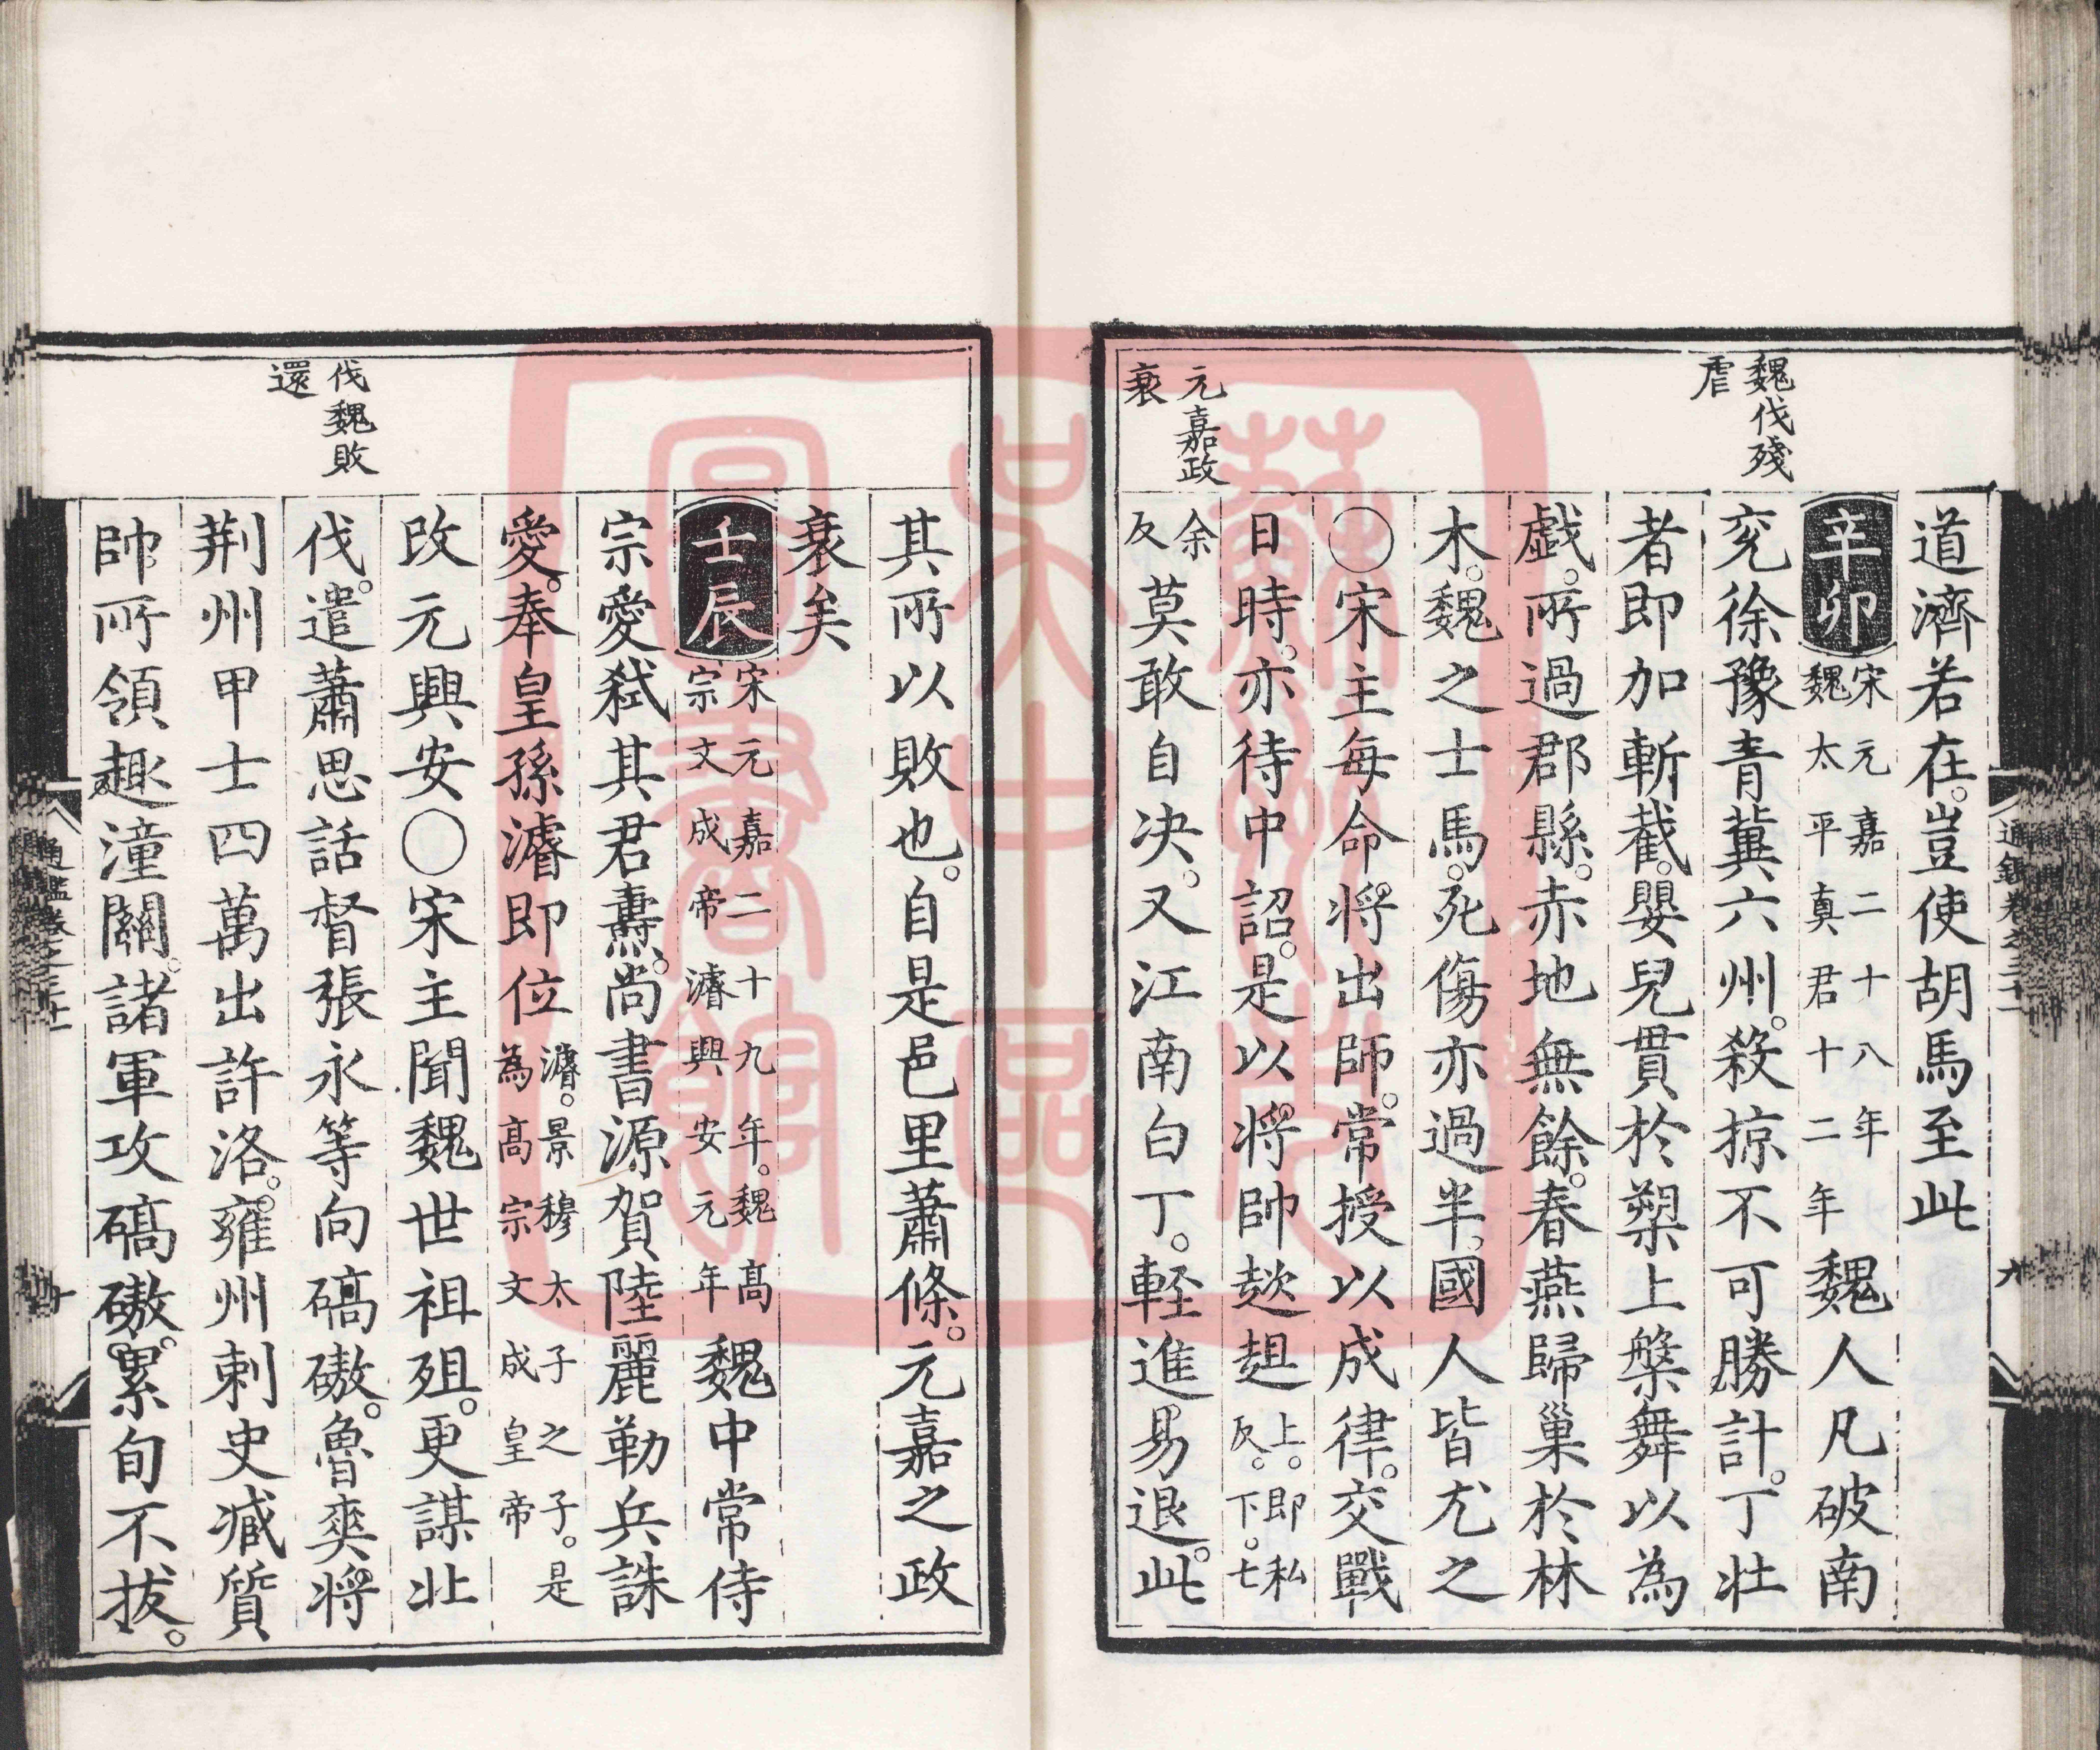 魏伐殘
虐
元嘉政
衰
道濟若在。豈使胡馬至此
辛卯宋元嘉二十八年魏太平真君十二年魏人凡破南
兗徐豫青冀六州。殺掠不可勝計。丁壯
者即加斬截。嬰兒貫於槊上槃舞以為
戲。所過郡縣。赤地無餘。春燕歸巢於林
木。魏之士馬。死傷亦過半。國人皆尤之
〇宋主每命將出師。常授以成律。交戰
日時。亦待中詔。是以將帥趑趄上。即私反。下。七
余反莫敢自決。又江南白丁。輕進易退。此
伐魏敗
還
其所以敗也。自是邑里蕭條。元嘉之政
衰矣
壬辰宋元嘉二十九年。魏高宗文成帝濬興安元年魏中常侍
宗愛弒其君燾。尚書源賀陸麗勒兵誅
愛。奉皇孫濬即位濬。景穆太子之子。是為高宗文成皇帝
改元興安〇宋主聞魏世祖殂。更謀北
伐。遣蕭思話督張永等向碻磝。魯爽將
荊州甲士四萬出許洛。雍州刺史臧質
帥所領趣潼關。諸軍攻碻磝。累旬不拔。